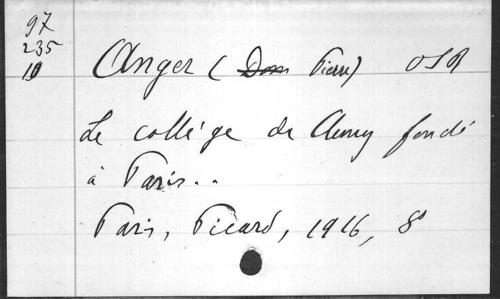 97
235
10
Anger (Dom Pierre) OSB
Le collège de Cluny fondé
à Paris..
Paris, Picard, 1916, 8°